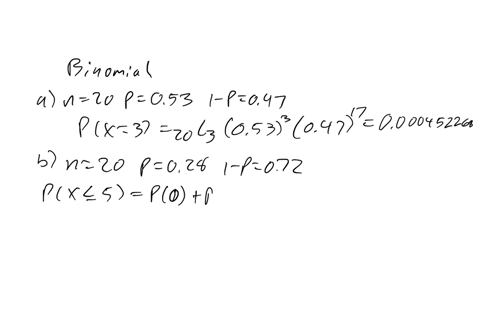 Binomial
a) n=20 p=0.53 1-p=0.47
P(x=3) = ₂₀C₃ (0.53)³ (0.47)¹⁷ = 0.000452268
b) n=20 p=0.28 1-p=0.72
P(x≤5) = P(0) + P